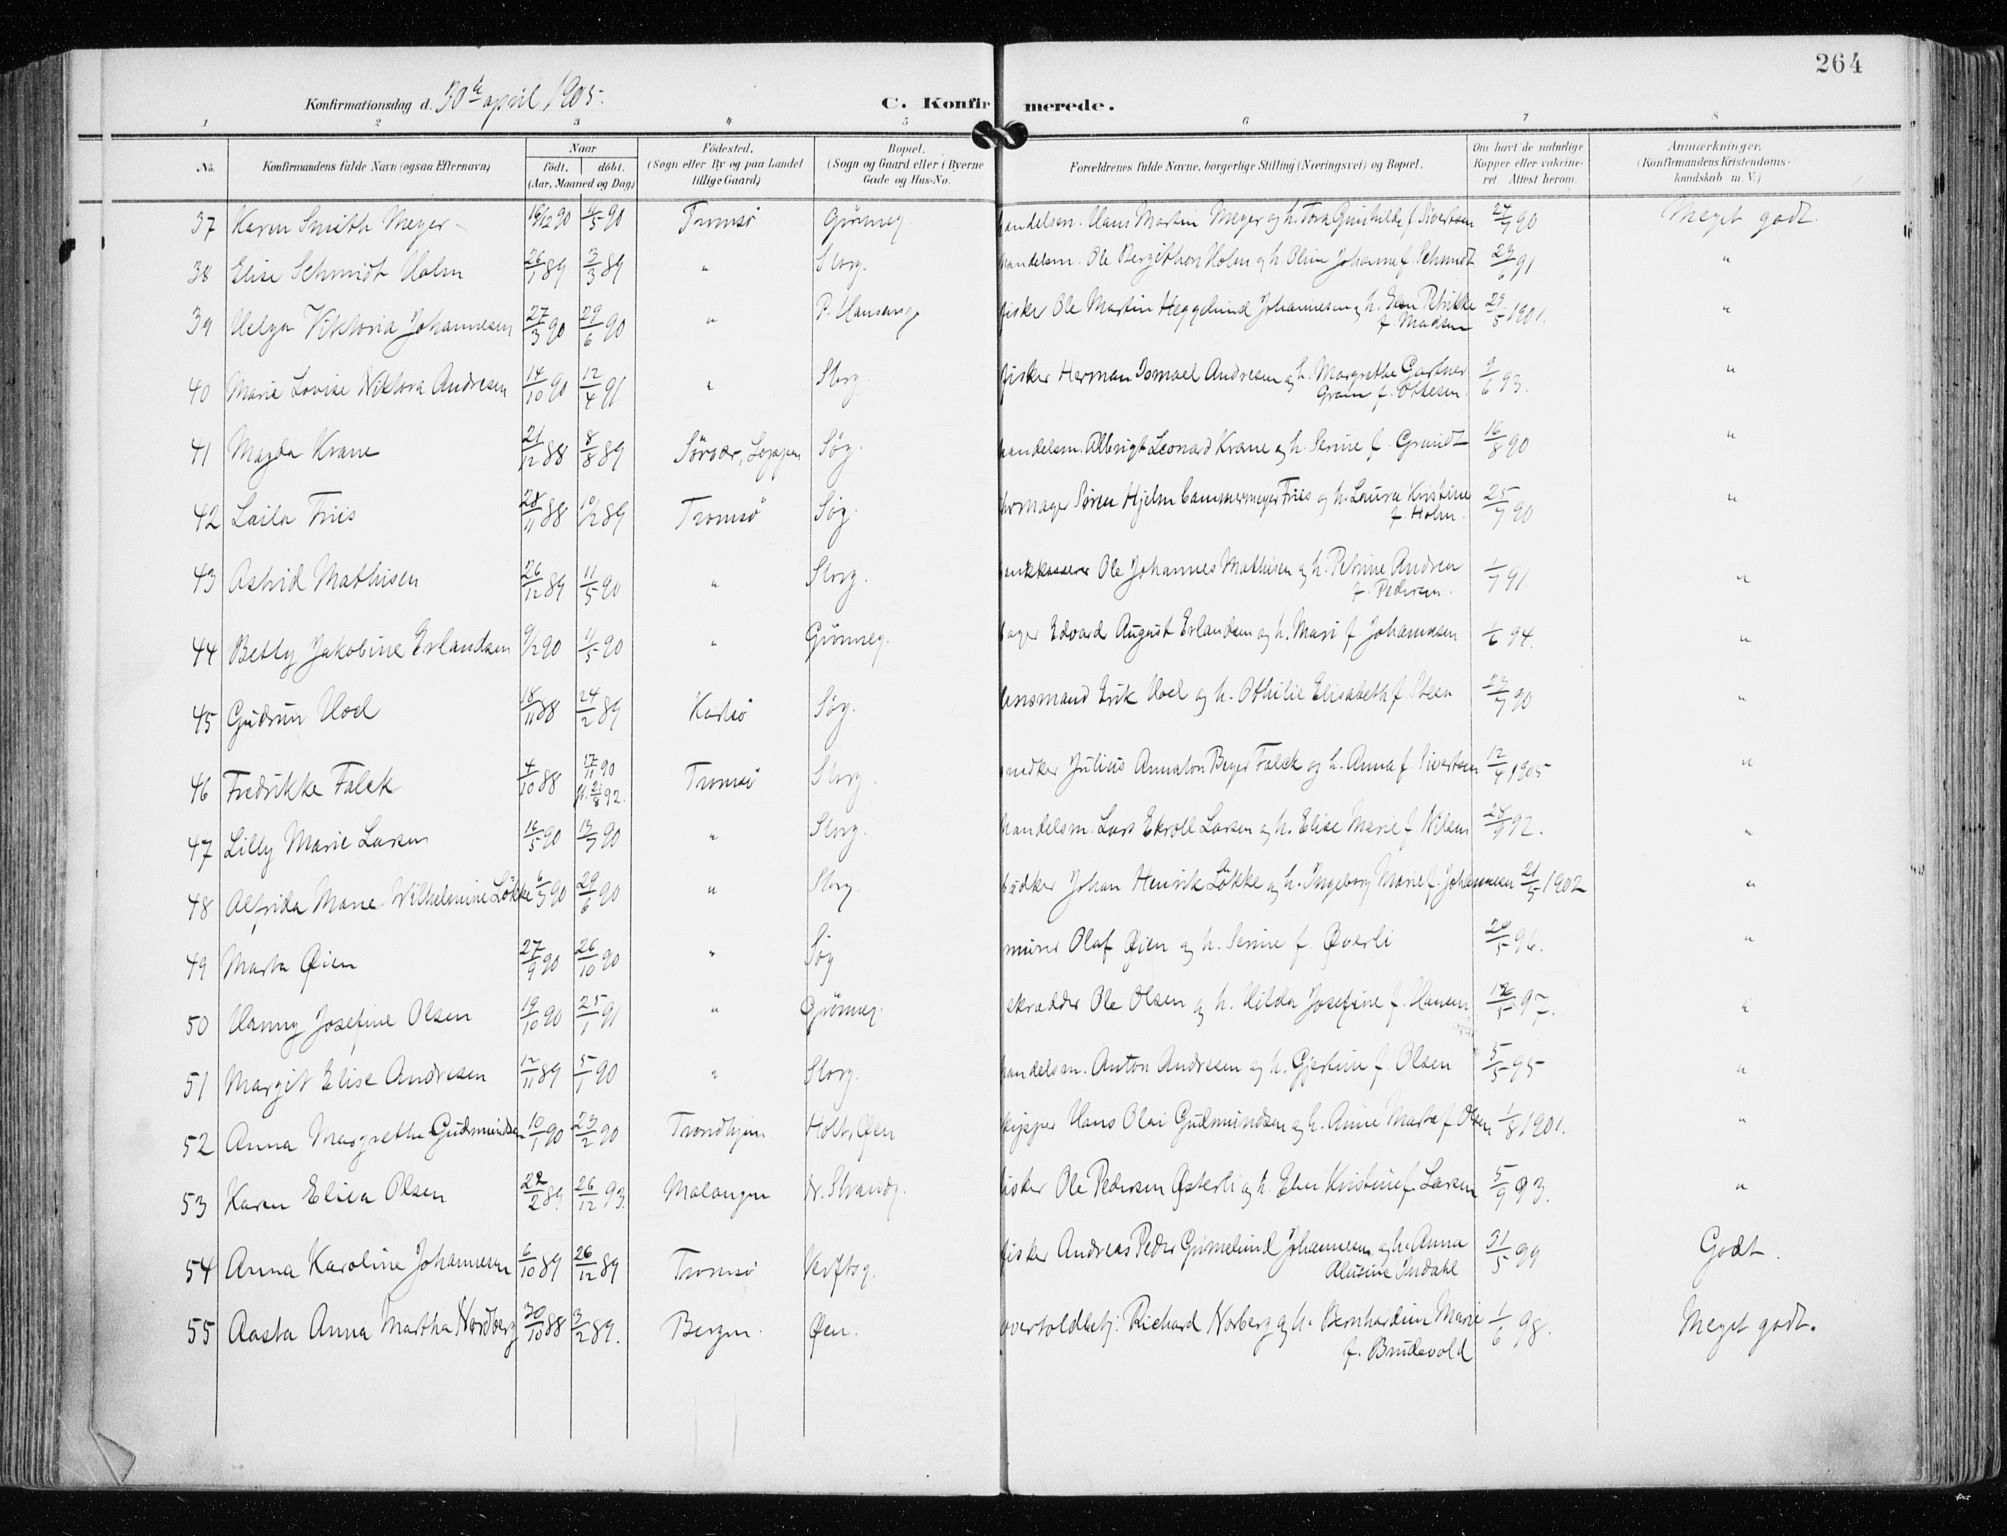 264
Konfirmationsdag d. 30te april 1905.
C. Konfirmerede.
1 2 3 4 5 6 7 8
No. Konfirmandens fulde Navn (ogsaa Efternavn) Naar født, døbt. (Aar, Maaned og Dag) Fødested. (Sogn eller By og paa Landet tillige Gaard) Bopæl. (Sogn og Gaard eller i Byerne Gade og Hus-No. Forældrenes fulde Navne, borgerlige Stilling (Næringsvei) og Bopæl. Om havt de naturlige Kopper eller vaccineret. Attest herom. Anmærkninger. (Konfirmandens Kristendomskundskab m. V.)
37 Karen Smith Meyer 19/2 90 4/5 90 Tromsø Grønneg. handelsm. Hans Martin Meyer og h. Tora Gunhilde f. Sivertsen 27/9 90 Meget godt.
38 Elise Schmidt Holm 26/1 89 3/3 89 " Storg. handelsm. Ole Bergithon Holm og h. Oline Johanne f. Schmidt 29/6 91 "
39 Helga Viktoria Johannesen 27/3 90 29/6 90 " P. Hansensg. fisker Ole Martin Heggelund Johannesen og h. Petrikke 29/5 1901. "
f. Madsen
40 Marie Lovise Viktora Andresen 14/10 90 12/4 91 " Storg. fisker Herman Ismael Andresen og h. Margrethe Gartner 9/6 93. "
Gram f. Ottesen.
41 Magda Krane 21/12 88 8/8 89 Sørvær, Loppen Søg. handelsm. Albrigt Leonard Krane og h. Serine f. Grundt 16/8 90 "
42 Laila Friis 28/11 88 10/2 89 Tromsø Søg. Søren Hjelm Cammermeyer Friis og h. Laura Kristine 25/9 90 "
f. Holm.
43 Astrid Mathisen 26/12 89 11/5 90 " Storg. bankkasserer Ole Johannes Mathisen og h. Petrine Andrea 1/7 91. "
f. Pedersen.
44 Betty Jakobine Erlandsen 9/2 90 11/5 90 " Grønneg. bager Edvard August Erlandsen og h. Mari f. Johannesen 1/6 94. "
45 Gudrun Hoel 18/11 88 24/2 89 Karlsø Søg. lensmand Erik Hoel og h. Othilie Elisabeth f. Steen 23/9 90 "
46 Fredrikke Falck 4/10 88 17/11 90 Tromsø Storg. snedker Julius Annaton Beyer Falck og h. Anna f. Sivertsen 12/4 1905 "
21/8 92.
47 Lilly Marie Larsen 16/5 90 13/7 90 " Storg. handelsm. Lars Ekroll Larsen og h. Elise Marie f. Nilsen 28/9 92. "
48 Alfrida Marie Vilhelmine Løkke 6/3 90 29/6 90 " Storg. bødker Johan Henrik Løkke og h. Ingeborg Marie f. Johannesen 21/5 1902 "
49 Marta Øien 27/9 90 26/10 90 " Søg murer Olaf Øien og h. Serine f. Øverli 20/5 96. "
50 Hanny Josefine Olsen 19/10 90 25/1 91 " Grønneg. skrædder Ole Olsen og h. Hilda Josefine f. Hansen 12/5 97. "
51 Margit Elise Andresen 12/11 89 5/1 90 " Storg. handelsm. Anton Andresen og h. Gjertine f. Olsen 5/5 95 "
52 Anna Margrethe Gudmundsen 10/1 90 23/2 90 Trondhjem Holt, Øen skipper Hans Olai Gudmundsen og h. Anne Marta f. Olsen 1/8 1901. "
53 Karen Elisa Olsen 22/2 89 26/12 93. Malangen N. Strandg. fisker Ole Pedersen Østerli og h. Elen Kristine f. Larsen 5/9 93. "
54 Anna Karoline Johannesen 6/10 89 26/12 89 Tromsø Verftsg. fisker Andreas Peder Grimelund Johannesen og h. Anna 31/5 99 Godt.
Alusine Indahl
55 Aasta Anna Martha Nordberg 30/10 88 3/2 89. Bergen. Øen. overtoldbetj. Richard Norberg og h. Bernhardine Marie 1/6 98. Meget godt.
f. Brudevold